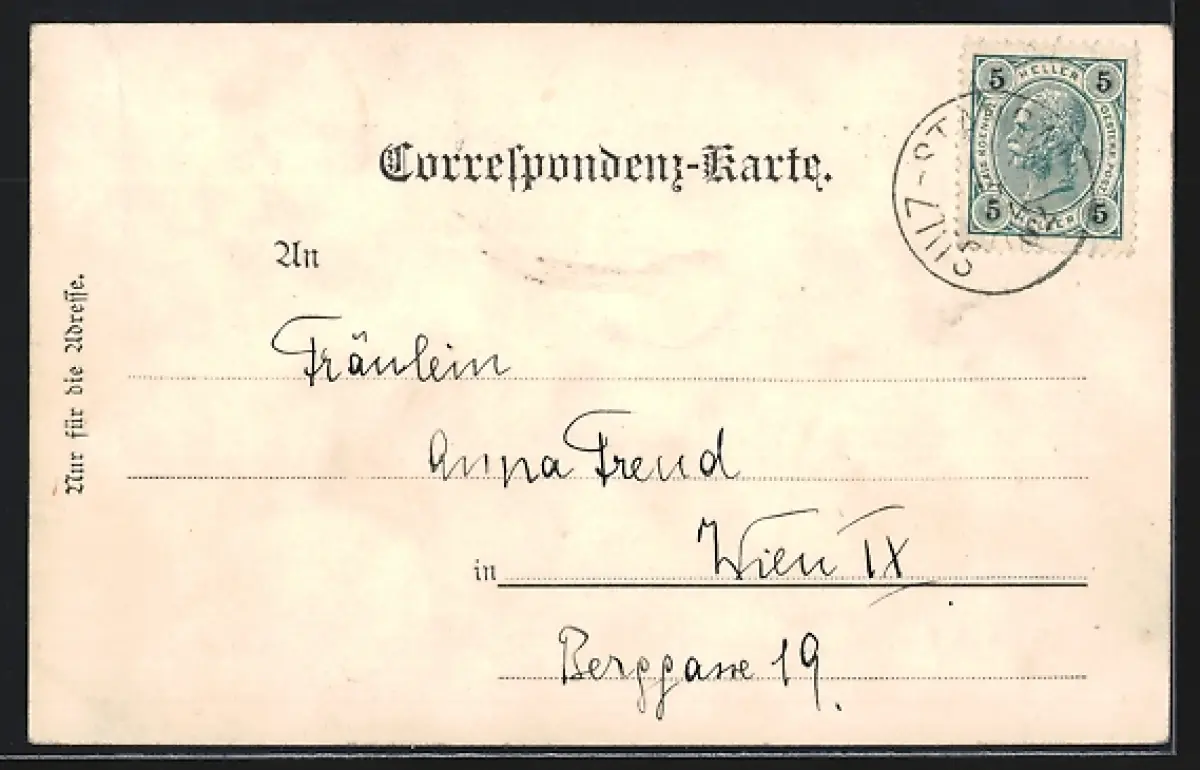 Correspondenz-Karte.
5 HELLER 5
5 HELLER 5
An
Fräulein
Anna Freud
in Wien IX
Berggasse 19.
Nur für die Adresse.